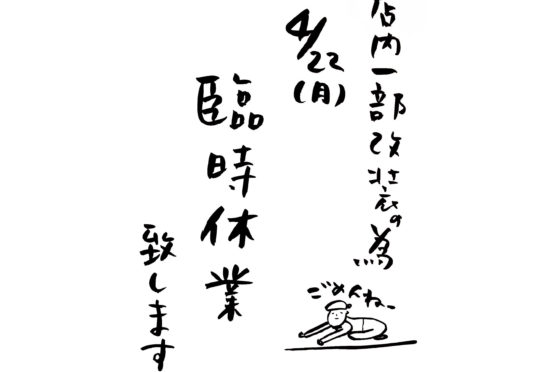 店内一部改装の為
4/22
(月)
臨時休業
致します
ごめんねー